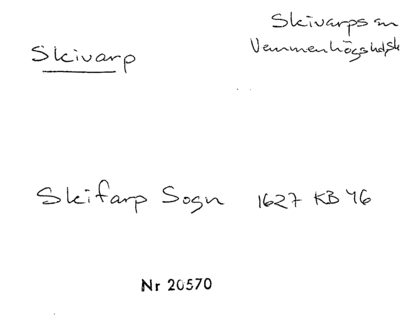 Skivarp
Skivarps sn
Vemmenhögs hd, Sk
Skifarp Sogn 1627 KB 46
Nr 20570